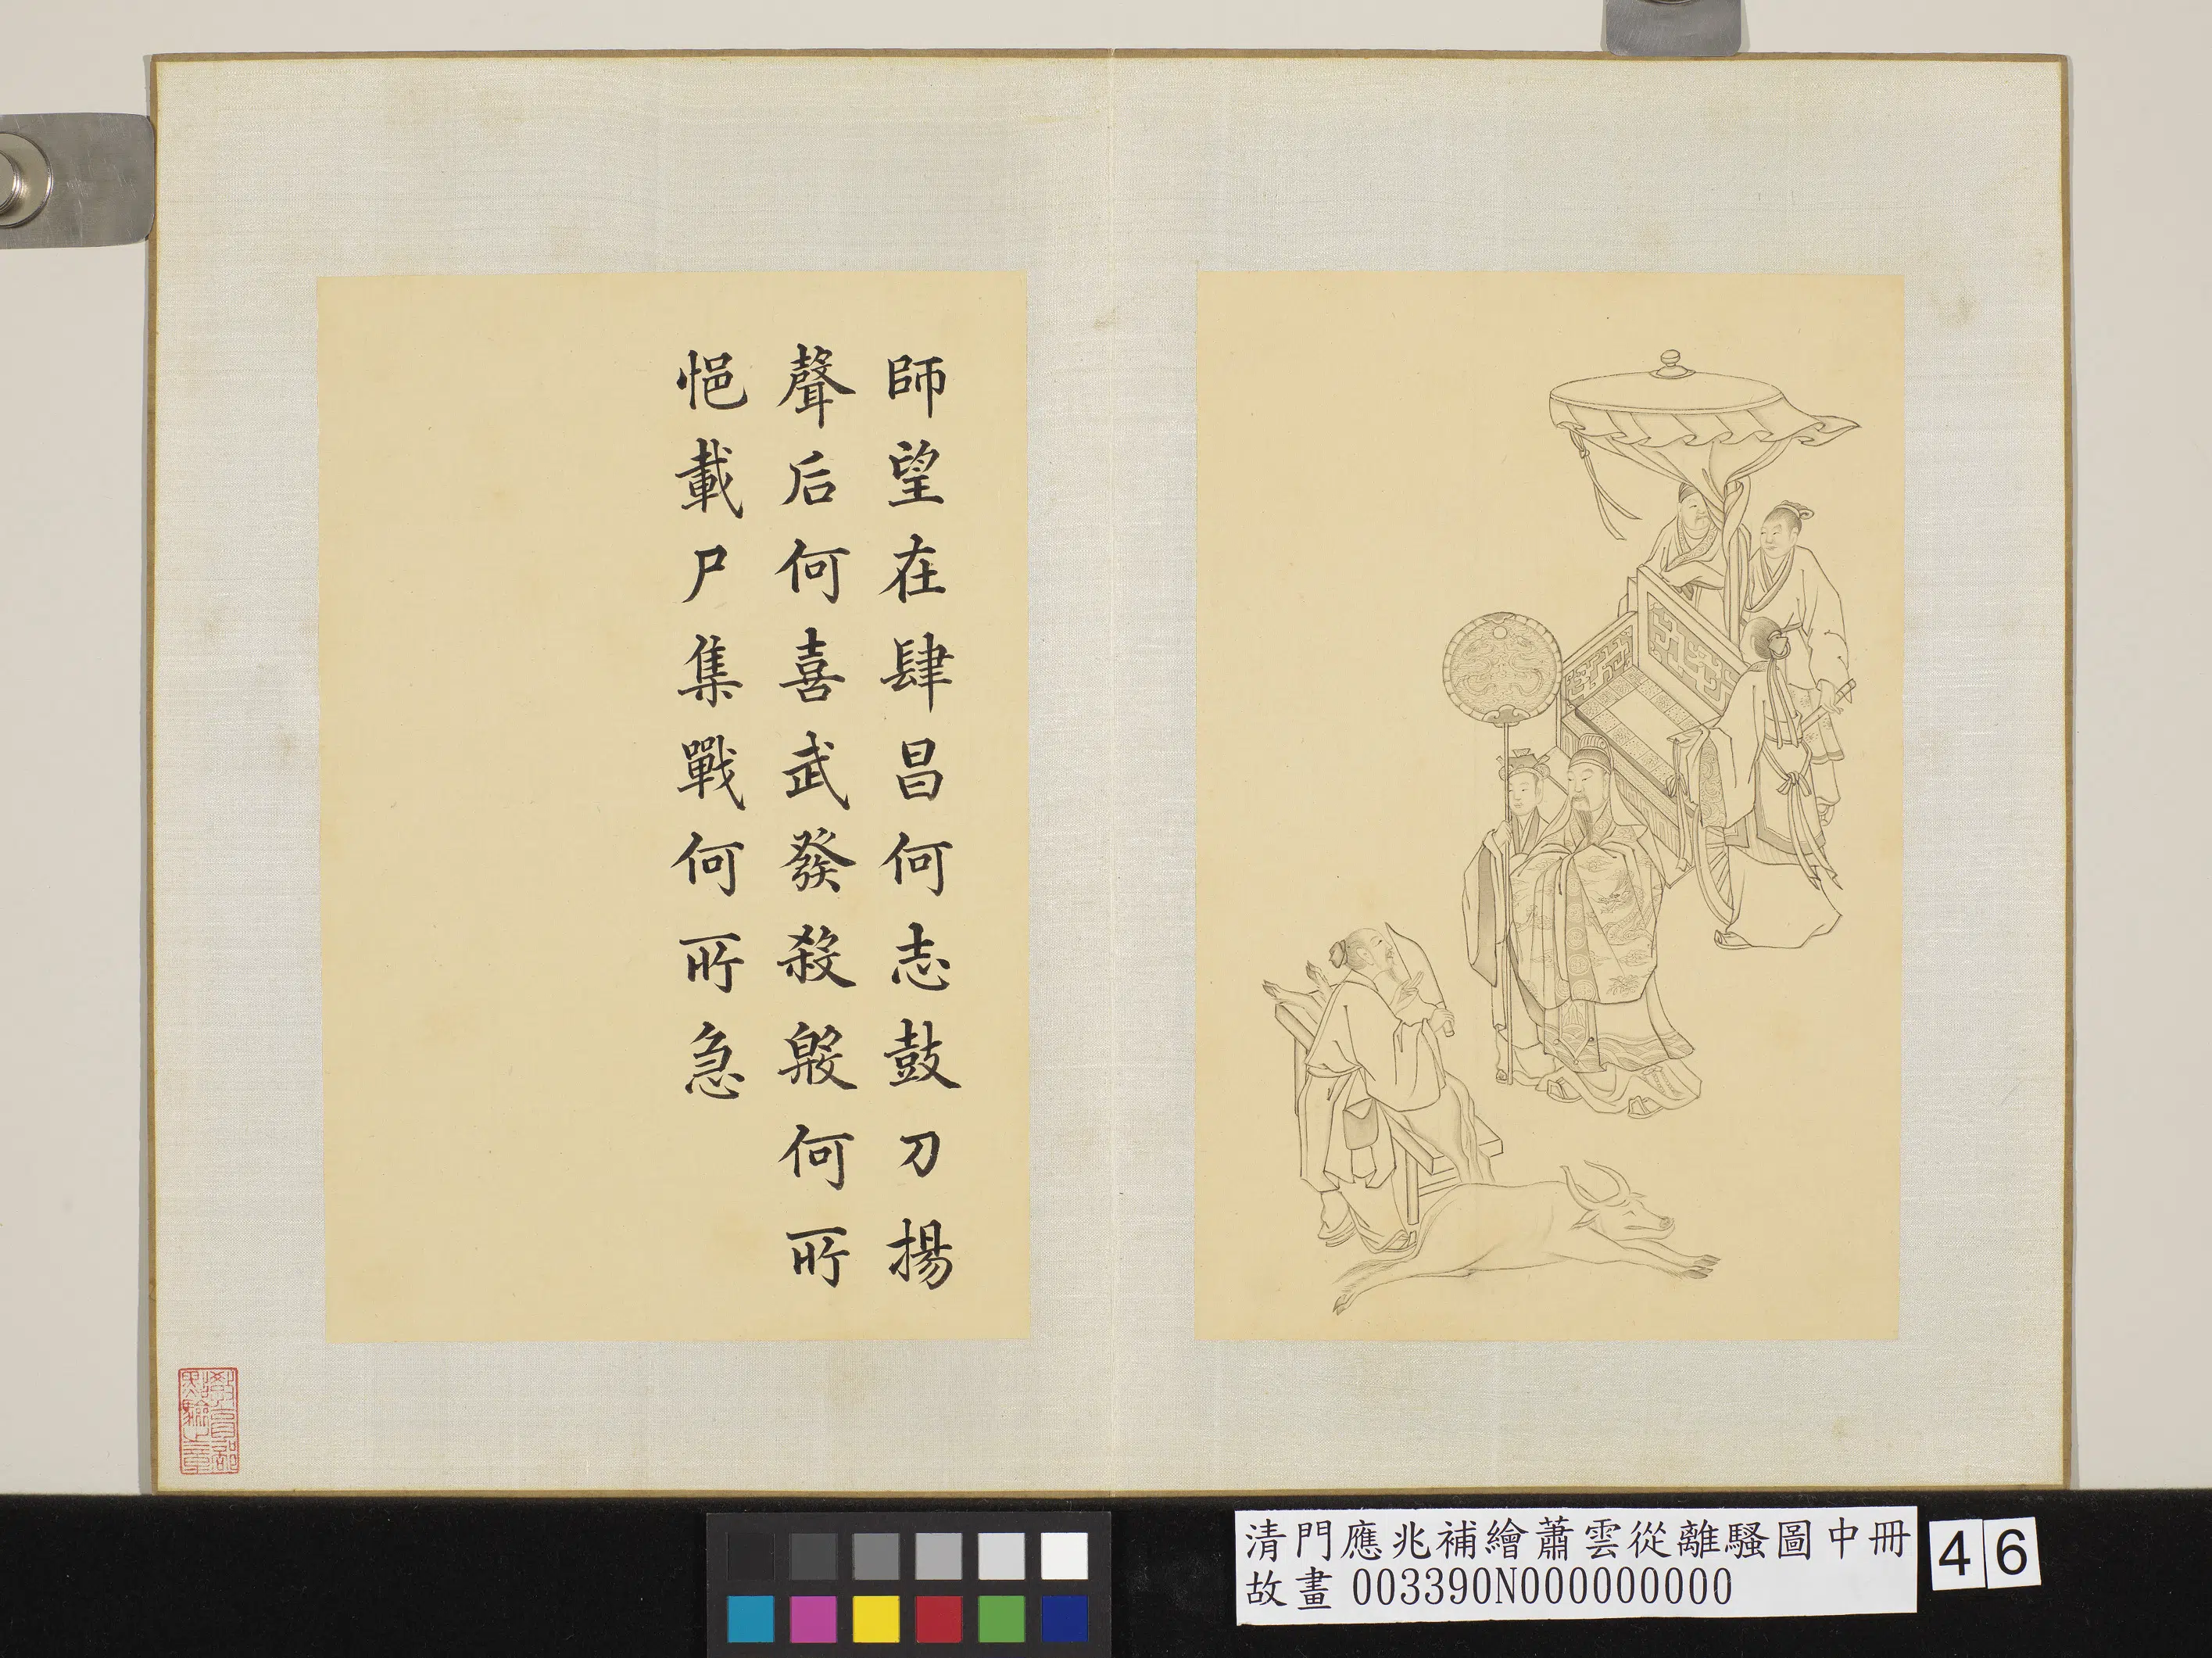 師望在肆昌何志鼓刀揚
聲后何喜武發殺殷何所
悒載尸集戰何所急
教育部
點驗之章
清門應兆補繪蕭雲從離騷圖中冊
故畫 003390N000000000
46